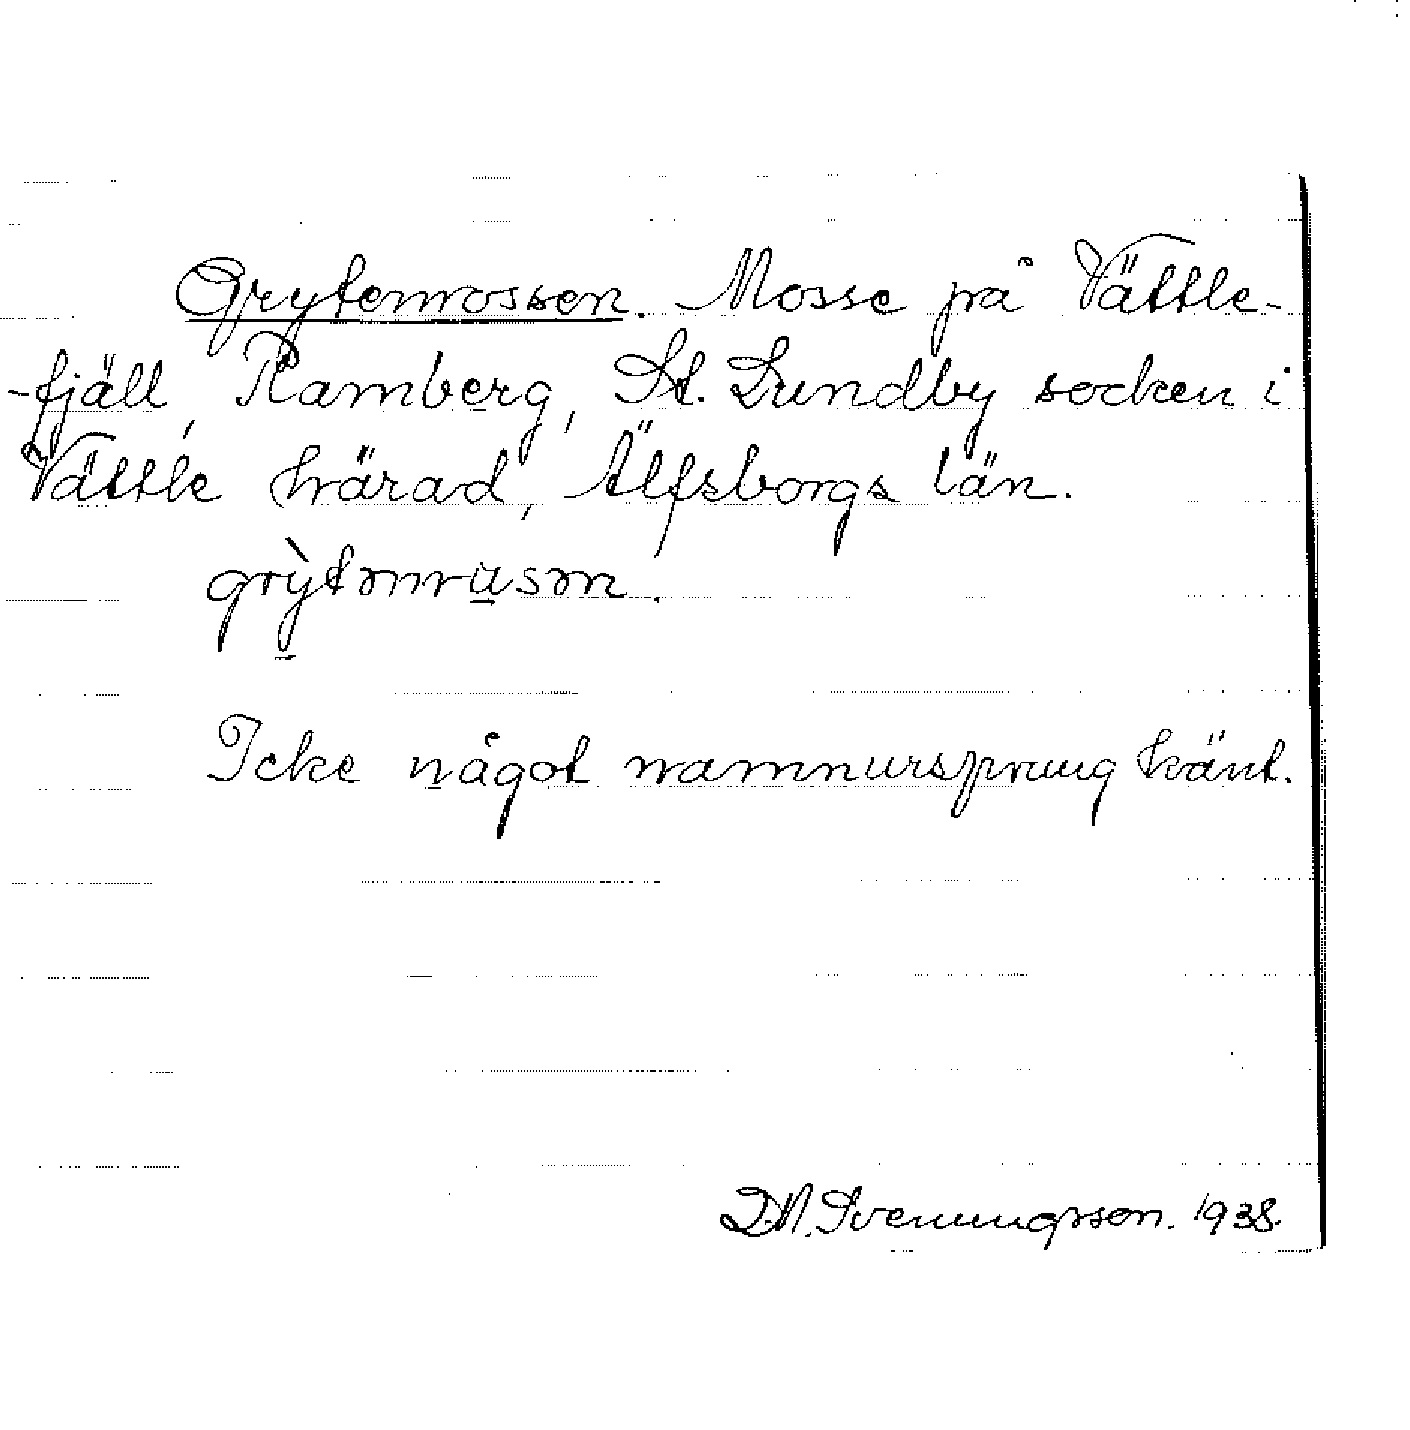 Grytemossen. Mosse på Vättle-
-fjäll, Ramberg, St. Lundby socken i
Vättle härad, Älfsborgs län.
grỳtəmusən.
Icke något namnursprung känt.
D.N. Svenungsson. 1938.